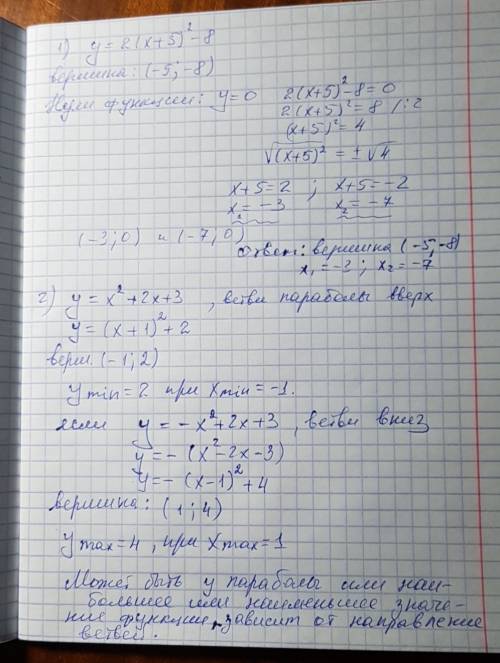 1) y = 2(x+5)² - 8
вершина: (-5; -8)
Нули функции: y=0
2(x+5)² - 8 = 0
2(x+5)² = 8 /:2
(x+5)² = 4
√(x+5)² = ± √4
x+5 = 2 ; x+5 = -2
x₁ = -3 x₂ = -7
(-3; 0) и (-7; 0)
Ответ: вершина (-5; -8)
x₁ = -3 ; x₂ = -7
2) y = x² + 2x + 3 , ветви параболы вверх
y = (x+1)² + 2
верш. (-1; 2)
y min = 2 при x min = -1.
если y = -x² + 2x + 3 , ветви вниз
y = - (x² - 2x - 3)
y = - (x-1)² + 4
вершина: (1; 4)
y max = 4 , при x max = 1
Может быть у параболы или наи-
большее или наименьшее значе-
ние функции, зависит от направление
ветвей.